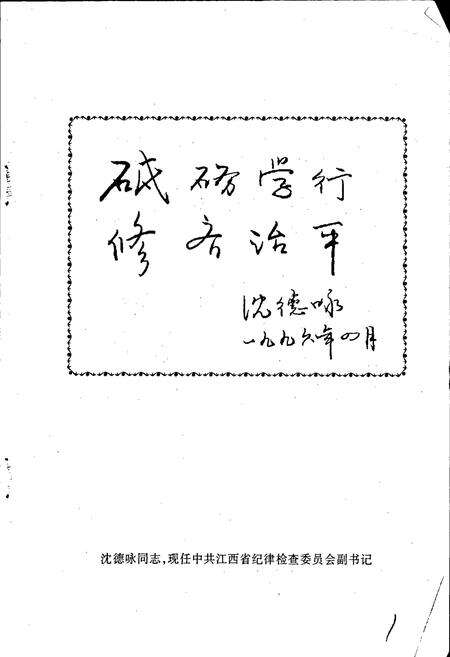 砥砺学行
修齐治平
沈德咏
一九九六年四月
沈德咏同志，现任中共江西省纪律检查委员会副书记
1